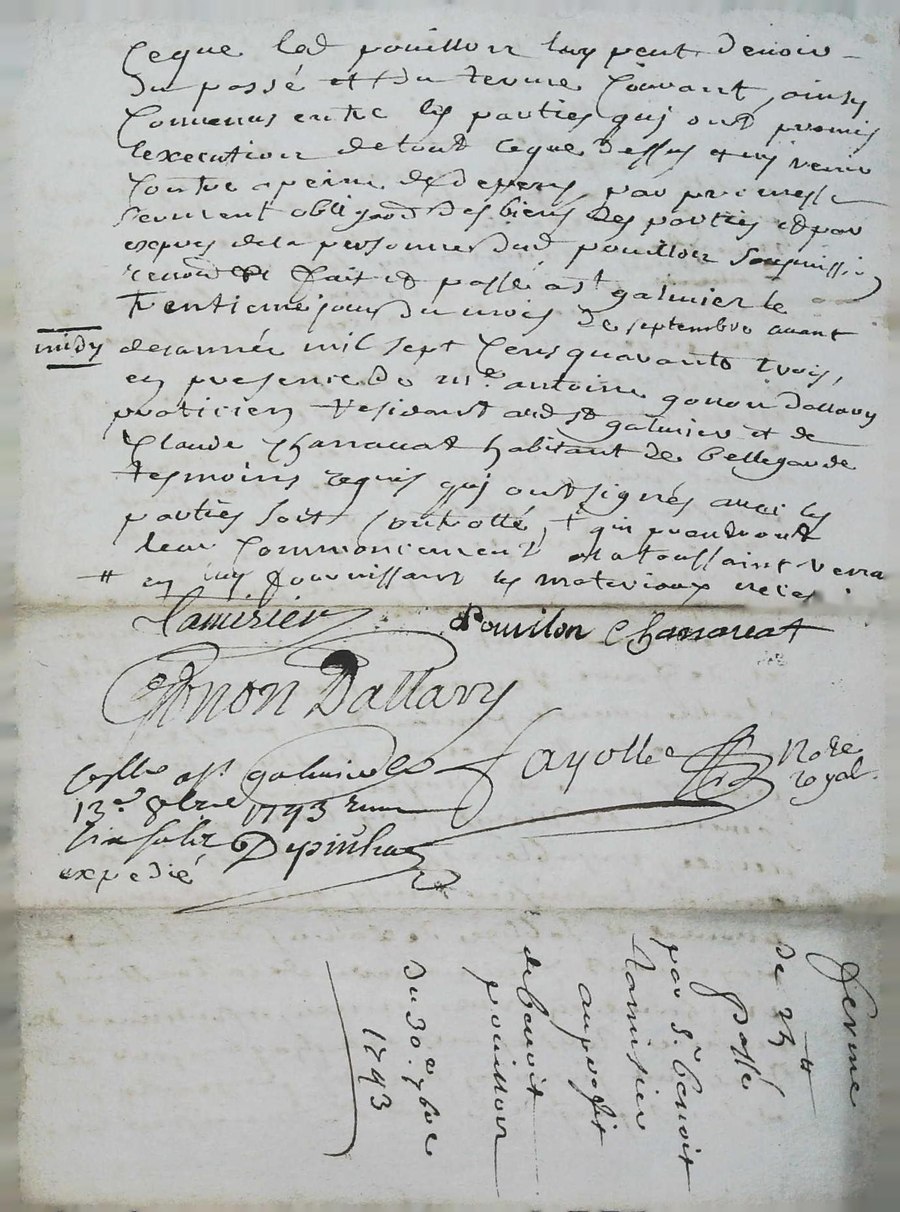 Ceque lad pouillon luy peut devoir
du passé et du terme Courant, ainsy
Convenus entre les parties qui ont promis
lexecution detout ceque dessus
Contre a peine de depens par promesse
serment obligaon des biens des parties et par
expres dela personne dud pouillon Soumission
renonon &c fait et passé a st galmier le
trentieme jour du mois de septembre avant
midy
delannée mil sept Cens quarante trois,
en presence de me antoine gonon dallary
praticien residant aud st galmier et de
Claude Charrauat habitant de bellegarde
tesmoins requis qui ont signés avec les
parties soit controllé, + qui prendront
leur Commencement ala toussaint
# en luy fournissant les materiaux
Pouilon Charrauat
Gonon Dallary
Fayolle Nore
royal
a st galmier le
13e 8bre 1743
expedié
ferme
de 23#
passé
par sr benoit
auprofit
debenoit
pouillon
du 30e 7bre
1743